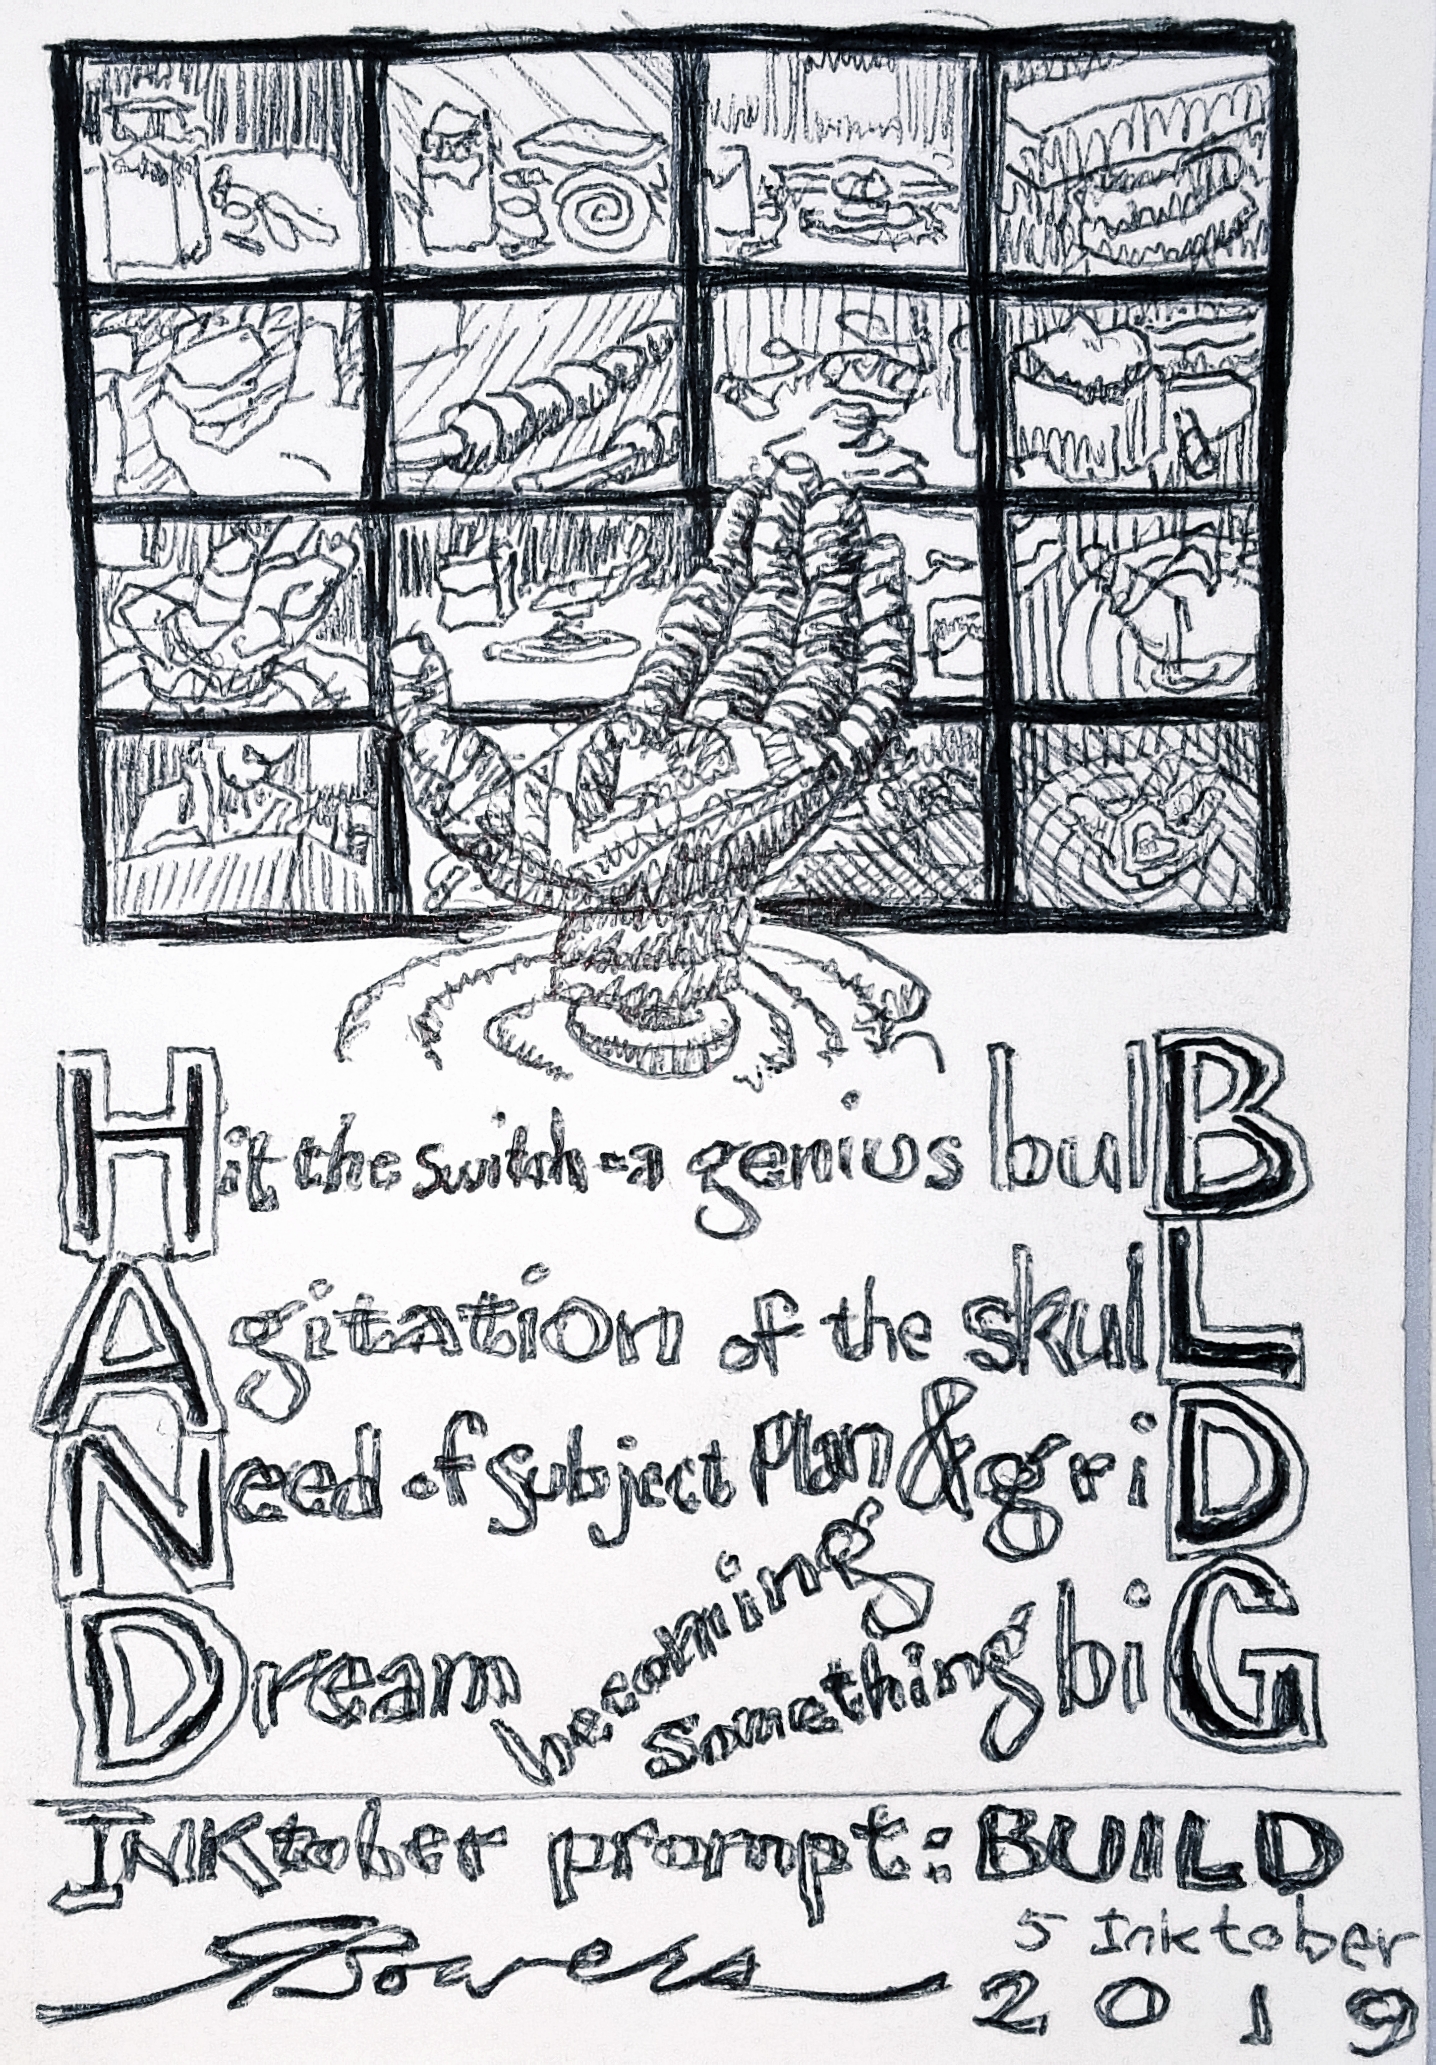 Hit the switch = a genius bulB
Agitation of the skulL
Need of subject Plan & griD
Dream becoming something biG
INKtober prompt: BUILD
Bowers
5 Inktober
2019